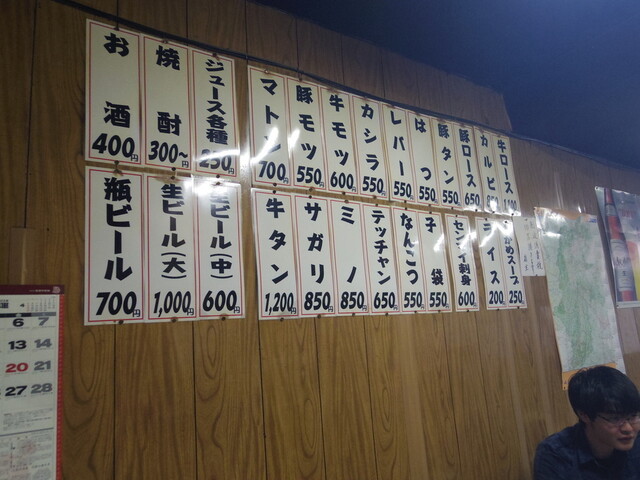 お酒 400円
焼酎 300〜円
ジュース各種 250円
マトン 700円
豚モツ 550円
牛モツ 600円
カシラ 550円
レバー 550円
はつ 550円
豚タン 550円
豚ロース 650円
カルビ
牛ロース
瓶ビール 700円
生ビール(大) 1,000円
生ビール(中) 600円
牛タン 1,200円
サガリ 850円
ミノ 850円
テッチャン 650円
なんこつ 550円
子袋 550円
センマイ刺身 600円
ライス 200円
わかめスープ 250円
6 7
13 14
20 21
27 28